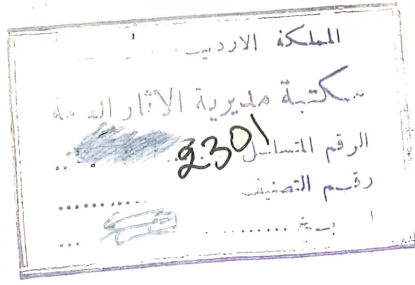 المملكة الاردنيـ
مكتبة مديرية الاثار العامه
الرقم المتسلسل 2301
رقم التصنيف ..........